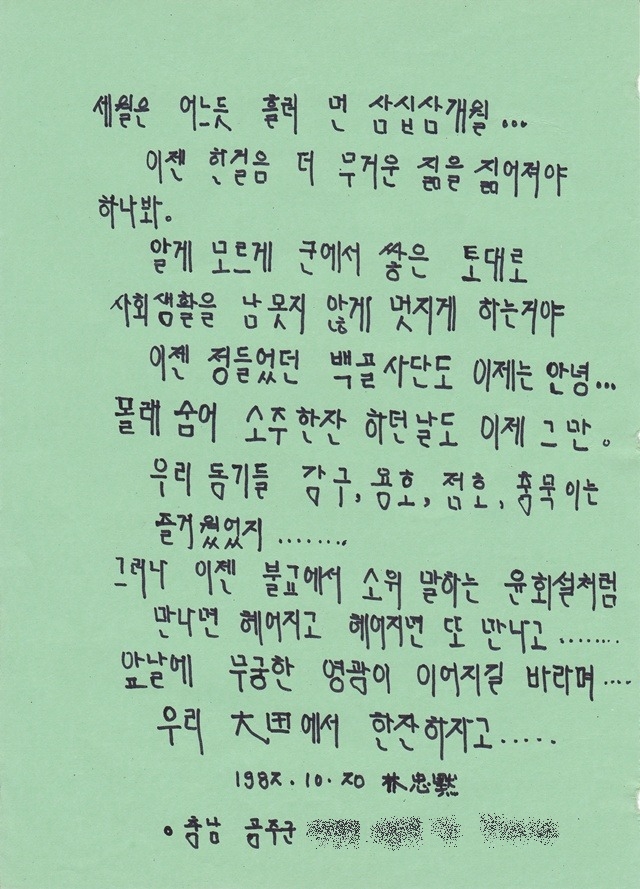 세월은 어느듯 흘러 먼 삼십삼개월...
이젠 한걸음 더 무거운 짊을 짊어져야
하나봐。
알게 모르게 군에서 쌓은 토대로
사회생활을 남못지 않게 멋지게 하는거야
이젠 정들었던 백골사단도 이제는 안녕...
몰래 숨어 소주한잔 하던날도 이제 그만。
우리 동기들 감구, 용호, 점호, 충묵이는
즐거웠었지........
그러나 이젠 불교에서 소위 말하는 윤회설처럼
만나면 헤어지고 헤어지면 또 만나고.......
앞날에 무궁한 영광이 이어지길 바라며....
우리 大田에서 한잔하자고.....
1982.10.20 林忠默
o 충남 공주군